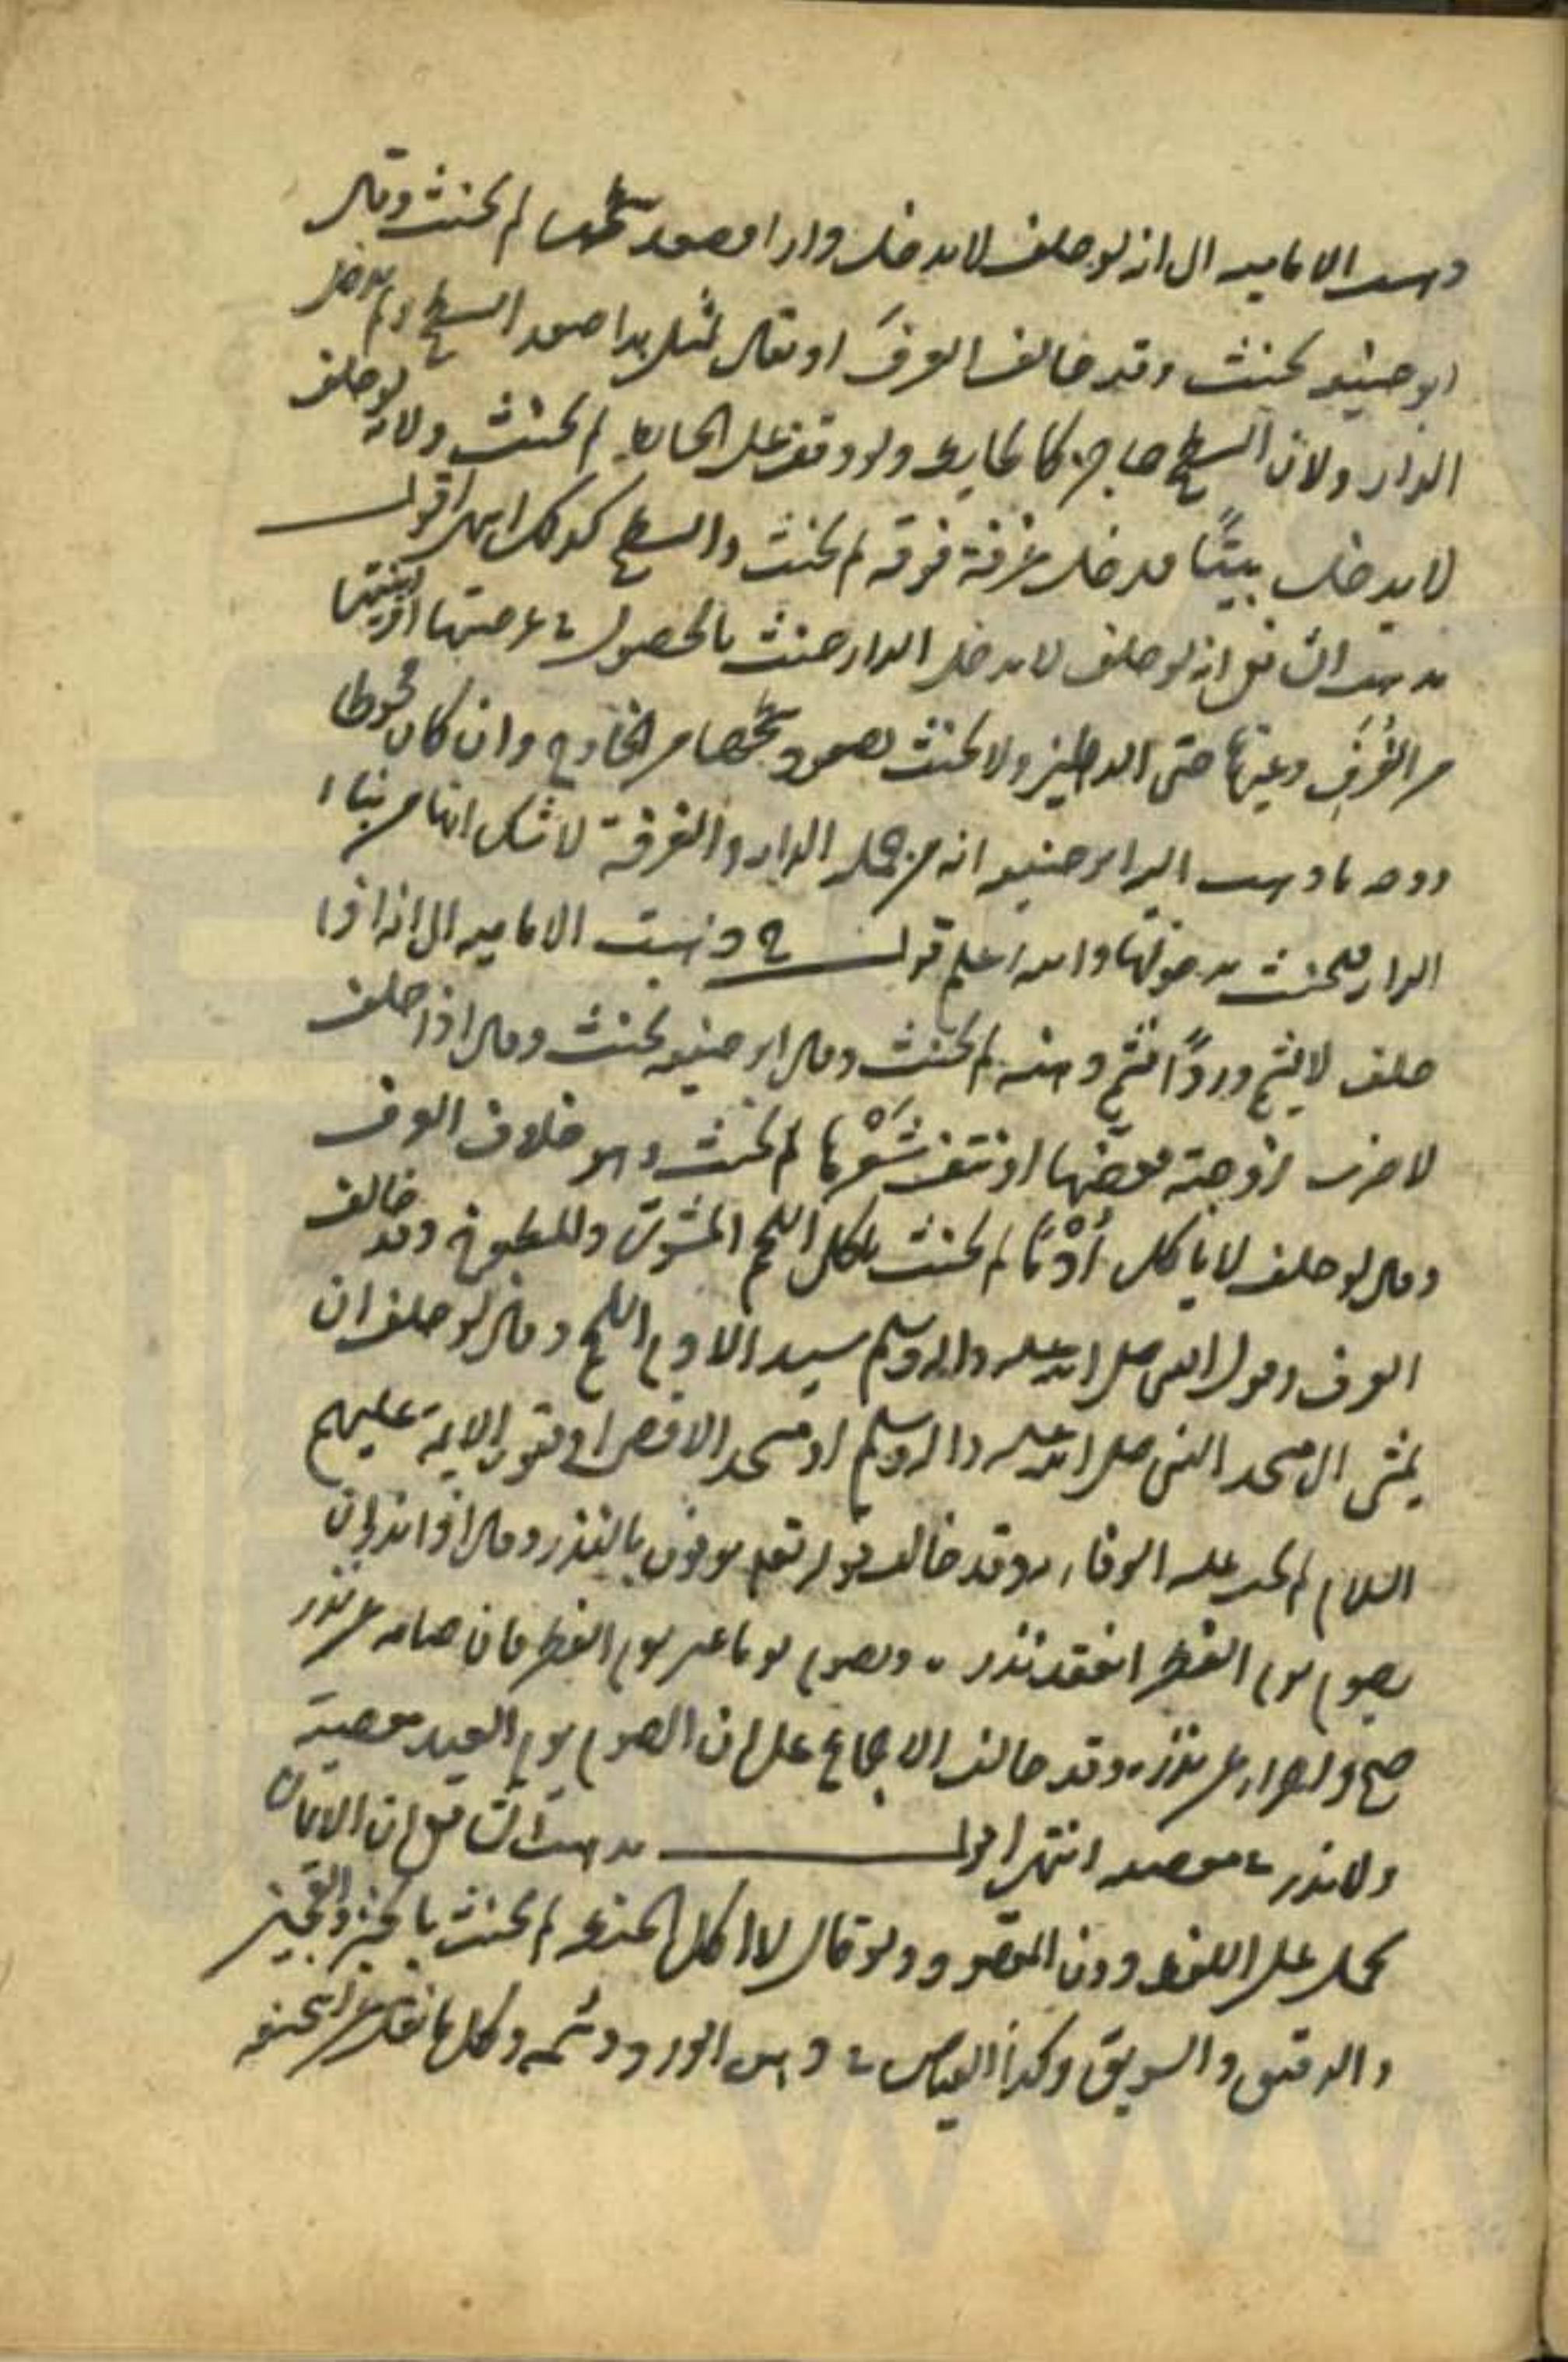 وذهبت الاماميه الى انه لو حلف لا يدخل دارا فصعد سطحها لم يحنث وقال
ابو حنيفه يحنث وقد خالف العرف او يقال لمثل هذا صعد السطح ولم يدخل
الدار ولان السطح حاجز كالحايط ولو وقف على الحايط لم يحنث ولانه لو حلف
لا يدخل بيتًا فدخل غرفة فوقه لم يحنث والسطح كذلك انتهى اقول
مذهب الشافعى انه لو حلف لا يدخل الدار حنث بالحصول في عرصتها او بيتها
من الغُرَفِ وغيرها حتى الدهليز ولا يحنث بصعود سطحها من الخارج وان كان محوطا
ووجه ما ذهب اليه ابو حنيفه انه من جملة الدار والغرفة لا شك انها من بناء
الدار فيحنث بدخولها والله اعلم قوله وذهبت الاماميه الى انه اذا
حلف لا يشم وردًا فشم دهنه لم يحنث وقال ابو حنيفه يحنث وقال اذا حلف
لا ضرب زوجته فعضها او نتف شَعْرها لم يحنث وهو خلاف العرف
وقال لو حلف لا ياكل أُدْمًا لم يحنث باكل اللحم المشوى والمطبوخ وقد خالف
العرف وقول النبى صلى الله عليه واله وسلم سيد الادم اللحم وقال لو حلف ان
يمشى الى مسجد النبى صلى الله عليه واله وسلم او مسجد الاقصى او قبور الايمة عليهم
السلام لم يجب عليه الوفاء به وقد خالف قوله تعالى يوفون بالنذر وقال اذا نذر ان
يصوم يوم الفطر انعقد نذره ويصوم يوما غير يوم الفطر فان صامه عن نذره
صح واجزاه عن نذره وقد خالف الاجماع على ان الصوم يوم العيد معصية
ولا نذر في معصيه انتهى اقول مذهب الشافعى ان الايمان
يحمل على اللفظ دون المقصود ولو قال لا اكل الحنطه لم يحنث بالخبز والعجين
والدقيق والسويق وكذا القياس في دهن الورد وشمه وكل ما نقله عن ابى حنيفه